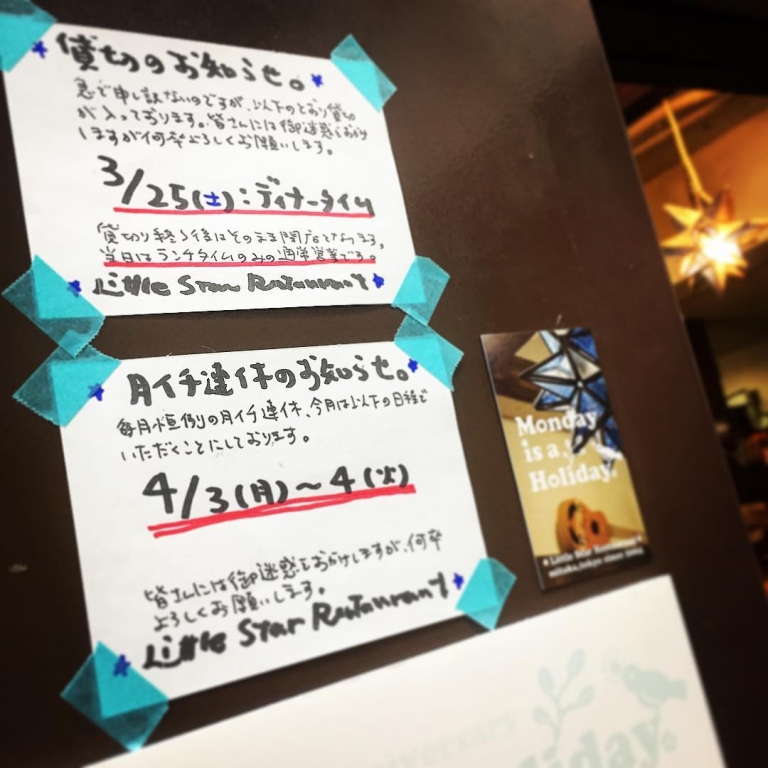 貸切のお知らせ。
急で申し訳ないのですが、以下のとおり貸切
が入っております。皆さんには御迷惑をおかけ
しますが何卒よろしくお願いします。
3/25(土):ディナータイム
貸切り終了後はそのまま閉店となります。
当日はランチタイムのみの通常営業です。
Little Star Restaurant
月イチ連休のお知らせ。
毎月恒例の月イチ連休、今月は以下の日程で
いただくことにしております。
4/3(月)～4(火)
皆さんには御迷惑をおかけしますが、何卒
よろしくお願いします。
Little Star Restaurant
Monday
is a
Holiday.
Little Star Restaurant
mitaka,tokyo since 2004
anniversary
holiday.